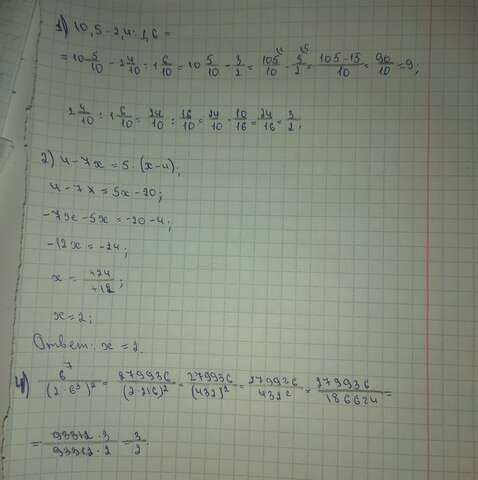 1) 10,5 - 2,4 : 1,6 =
= 10 5/10 - 2 4/10 : 1 6/10 = 10 5/10 - 3/2 = 105/10 - 3/2 = (105 - 15)/10 = 90/10 = 9;
2 4/10 : 1 6/10 = 24/10 : 16/10 = 24/10 · 10/16 = 24/16 = 3/2;
2) 4 - 7x = 5 · (x - 4);
4 - 7x = 5x - 20;
-7x - 5x = -20 - 4;
-12x = -24;
x = +24/+12;
x = 2;
Ответ: x = 2.
4) 6^7/(2 · 6^3)^2 = 279936/(2 · 216)^2 = 279936/(432)^2 = 279936/432^2 = 279936/186624 =
= (93312 · 3)/(93312 · 2) = 3/2